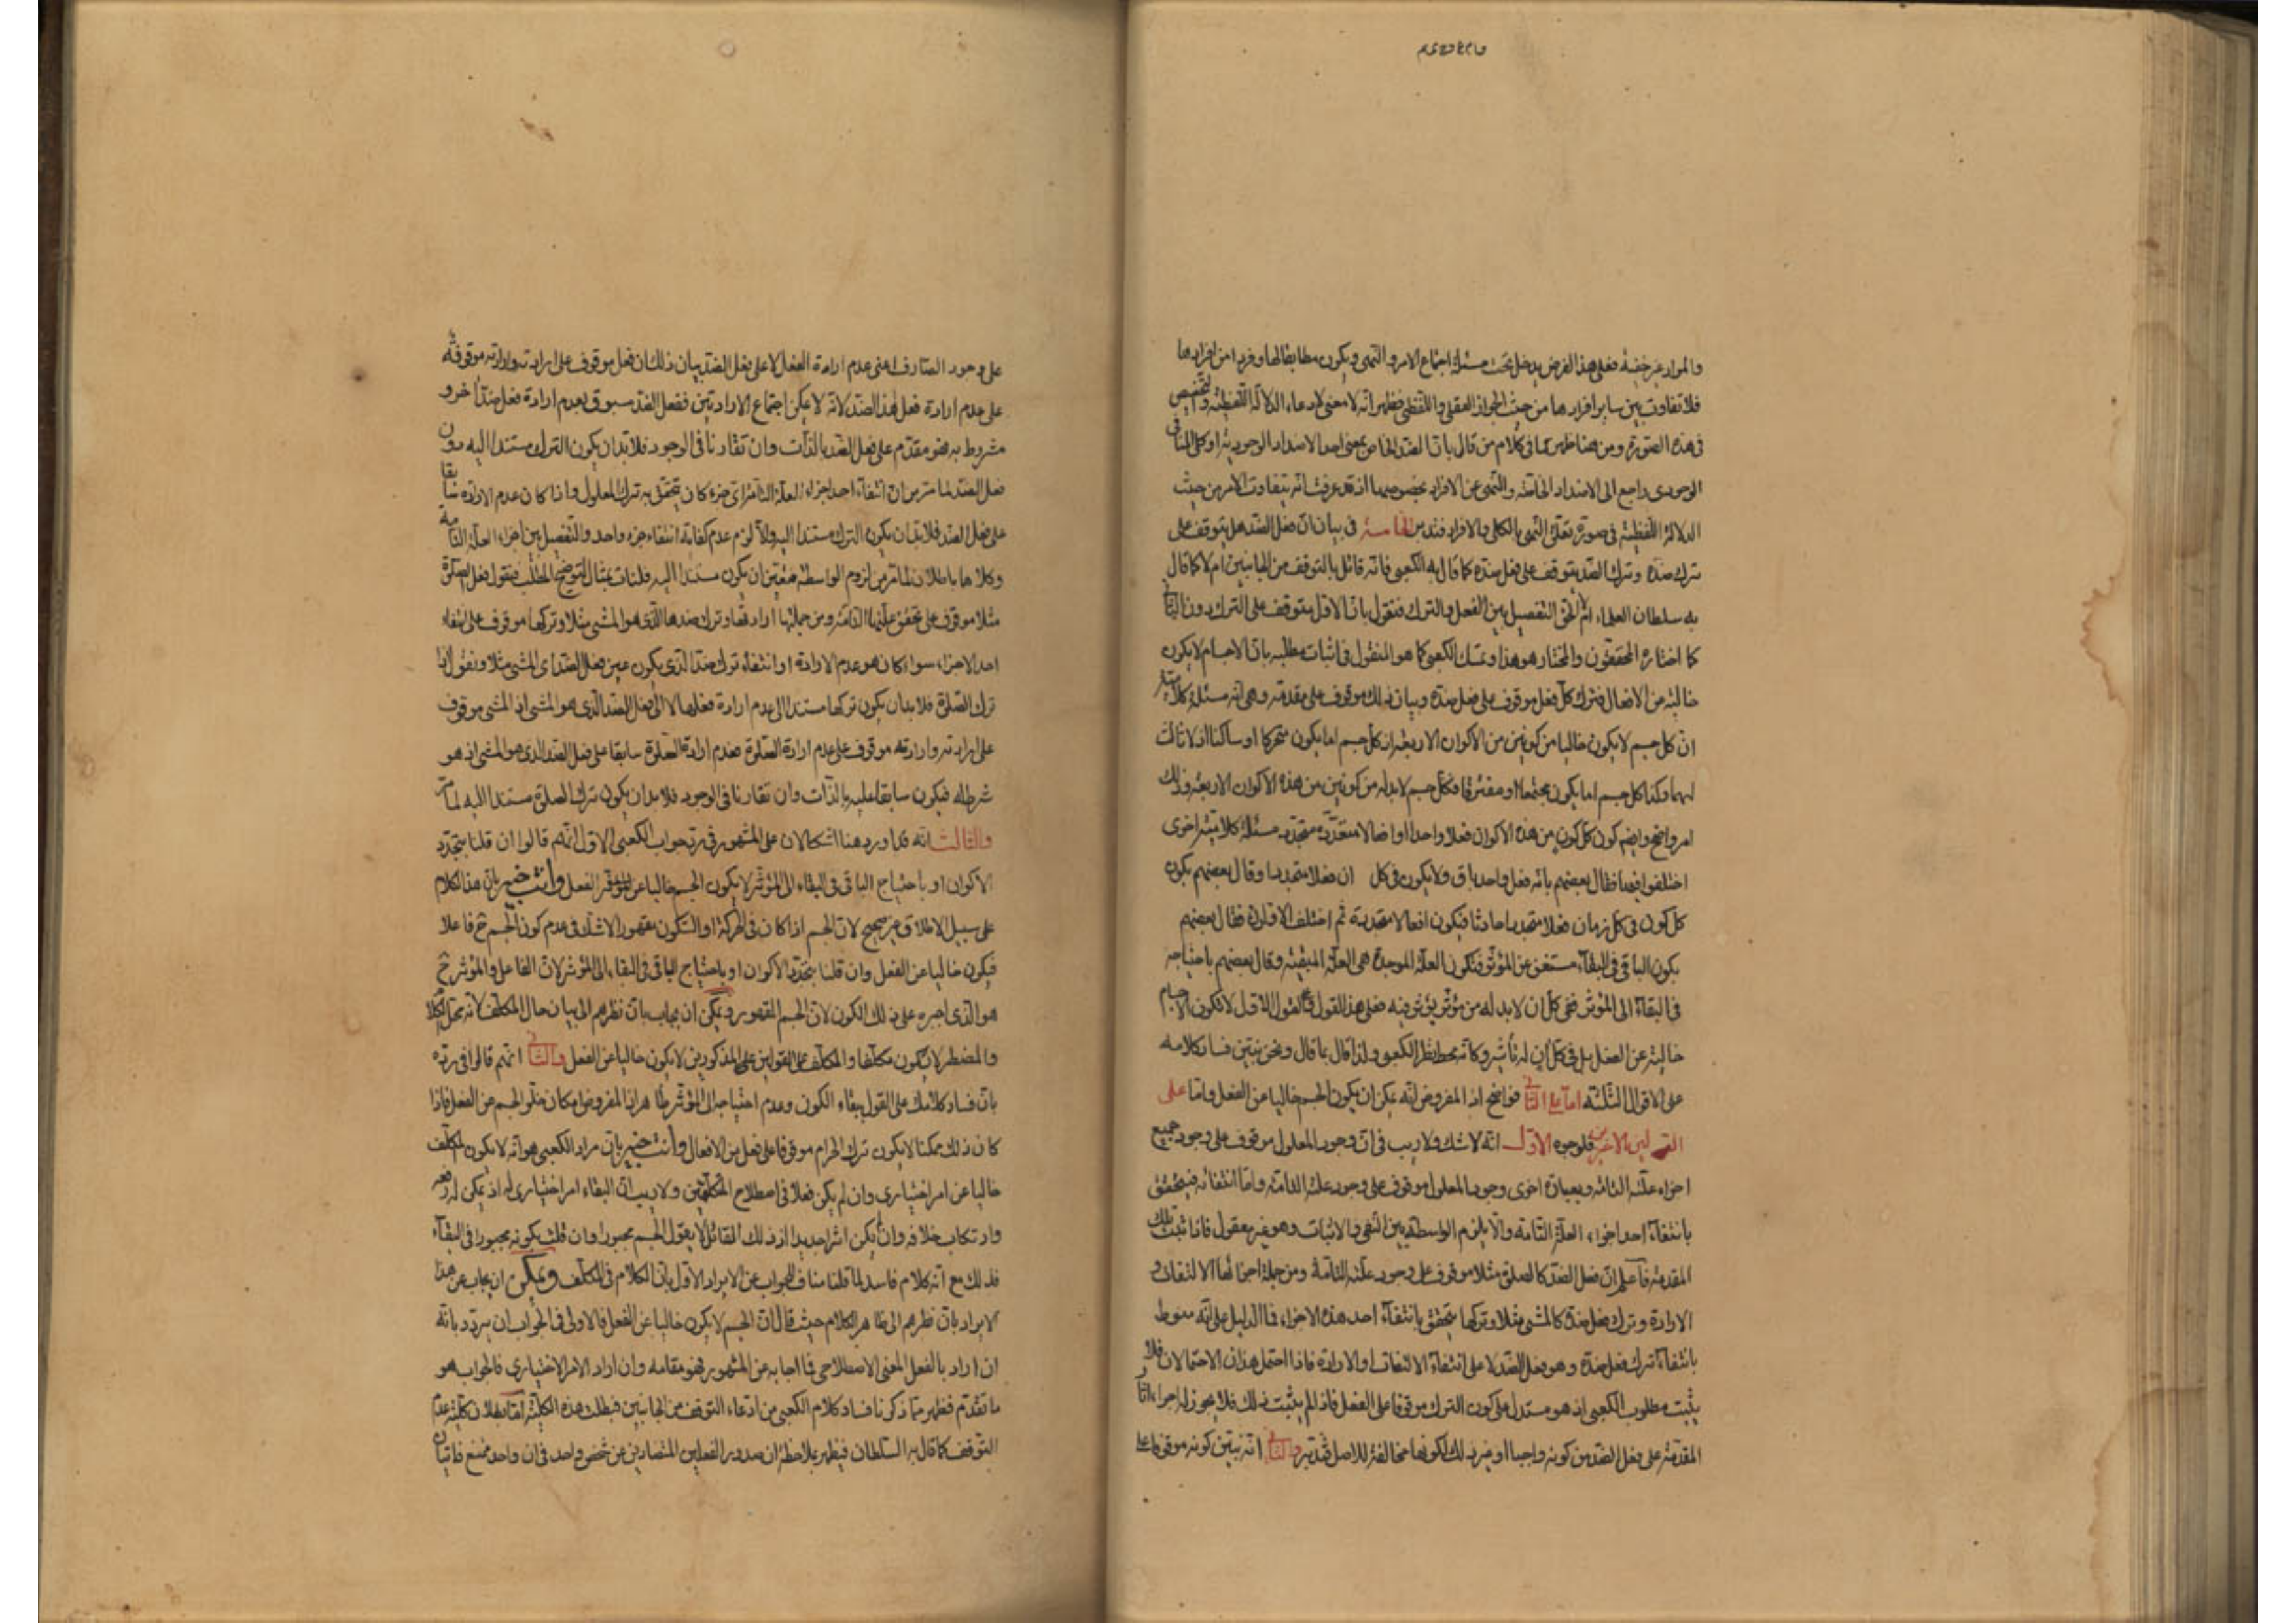 والمراد غير خفية فعلى هذا الفرض يدخل تحت مسئلة اجتماع الامر والنهى ويكون مطابقا لها وفردا من افرادها
فلا تفاوت بين ساير افرادها من حيث الجواز العقلى واللفظى فظهر انه لا معنى لادعاء الدلالة اللفظية وتخصيص
فى هذه الصورة ومن هنا ظهر ما فى كلام من قال بان الضد الخاص بمعنى احد الاضداد الوجودية او كلى المنافى
الوجودى راجع الى الاضداد الخاصة والنهى عن الافراد بخصوصها اذ قد عرفت انه يتفاوت الامر من حيث
الدلالة اللفظية فى صورة تعلق النهى بالكلى والافراد فتدبر الخامسة فى بيان ان فعل الضد هل يتوقف على
ترك ضده وترك الضد يتوقف على فعل ضده كما قال به الكعبى فانه قائل بالتوقف من الجانبين ام لا كما قال
به سلطان العلماء ام الحق التفصيل بين الفعل والترك فنقول بان الاول متوقف على الترك دون الثانى
كما اختاره المحققون والمختار هو هذا وتمسك الكعبى كما هو المنقول فى اثبات مطلبه بان الاجسام لا يكون
خالية من الافعال فترك كل فعل موقوف على فعل ضده وبيان ذلك موقوف على مقدمة وهى انه مسئلة كلامية
ان كل جسم لا يكون خاليا من كونين من الاكوان الاربعة اذ كل جسم اما يكون متحركا او ساكنا اذ لا ثالث
لهما وكذا كل جسم اما يكون مجتمعا او مفترقا فكل جسم لابد له من كونين من هذه الاكوان الاربعة وذلك
امر واضح وايضم كون كل كون من هذه الاكوان فعلا واحدا او افعالا متعددة متجدد مسئلة كلامية اخرى
اختلفوا فيها فقال بعضهم بانه فعل واحد باق ولا يكون فى كل ان فعلا متجددا وقال بعضهم يكون
كل كون فى كل زمان فعلا متجددا حادثا فيكون افعالا متعددة ثم اختلف الاولون فقال بعضهم
يكون الباقى فى البقاء مستغن عن المؤثر فتكون العلة الموجدة هى العلة المبقية وقال بعضهم باحتياجه
فى البقاء الى المؤثر ففى كل ان لابد له من مؤثر يؤثر فيه فعلى هذا القول كالقول الاول لا تكون الاجسام
خالية عن الفعل بل فى كل ان له تأثير وكانه محط نظر الكعبى ولذا قال بما قال ونحن نبين فساد كلامه
على الاقوال الثلثة اما على الثانى فواضح اذ المفروض انه يمكن ان يكون الجسم خاليا عن الفعل واما على
القولين الاخرين فلوجوه الاول انه لا شك ولا ريب فى ان وجود المعلول موقوف على وجود جميع
اجزاء علته التامة وبعبارة اخرى وجود المعلول موقوف على وجود علته التامة واما انتفائه فيتحقق
بانتفاء احد اجزاء العلة التامة والا يلزم الواسطة بين النفى والاثبات وهو غير معقول فاذا ثبت تلك
المقدمة فاعلم ان فعل الضد كالصلوة مثلا موقوف على وجود علته التامة ومن جملة اجزائها الالتفات و
الارادة وترك فعل ضده كالمشى مثلا وتركها يتحقق بانتفاء احد هذه الاجزاء فما الدليل على انه منوط
بانتفاء ترك فعل ضده وهو فعل الضد لا على انتفاء الالتفات او الارادة فاذا احتمل هذان الاحتمالان فلا
يثبت مطلوب الكعبى اذ هو مستدل على كون الترك موقوفا على الفعل فاذ لم يثبت ذلك فلا يجوز له اجراء اثار
المقدمة على فعل الضد من كونه واجبا او غير ذلك لكونها مخالفة للاصل فتدبر والثانى انه نبين كونه موقوفا على
على وجود الصارف اعنى عدم ارادة الفعل لا على فعل الضد بيان ذلك ان فعل موقوف على ارادته وارادته موقوفة
على عدم ارادة فعل هذا الضد لانه لا يمكن اجتماع الارادتين ففعل الضد مسبوق بعدم ارادة فعل ضد اخر و
مشروط به فهو مقدم على فعل الضد بالذات وان تقارنا فى الوجود فلابد ان يكون الترك مستندا اليه دون
فعل الضد لما مر من ان انتفاء احد اجزاء العلة التامة اى جزء كان يتحقق به ترك المعلول واذا كان عدم الارادة سابقا
على فعل الضد فلابد ان يكون الترك مستندا اليه والا لزم عدم كفاية انتفاء جزء واحد والتفصيل بين اجزاء العلة التامة
وكلاهما باطلان لما مر من لزوم الواسطة فتعين ان يكون مستندا اليه فلنات بمثال لتوضيح المطلب فنقول فعل الصلوة
مثلا موقوف على تحقق علتها التامة ومن جملتها ارادتها وترك ضدها الذى هو المشى مثلا وتركها موقوف على انتفاء
احد الاجزاء سواء كان هو عدم الارادة او انتفاء ترك ضد الذى يكون عين فعل الضد اى المشى مثلا ونقول اذا
ترك الصلوة فلابد ان يكون تركها مستندا الى عدم ارادة فعلها لا الى فعل الضد الذى هو المشى اذ المشى موقوف
على ارادته وارادته موقوف على عدم ارادة الصلوة فعدم ارادة الصلوة سابقا على فعل الضد الذى هو المشى اذ هو
شرط له فيكون سابقا عليه بالذات وان تقارنا فى الوجود فلابد ان يكون ترك الصلوة مستندا اليه لما مر
والثالث انه قد اورد هنا اشكالان على المشهور فى رد جواب الكعبى الاول انهم قالوا ان قلنا بتجدد
الاكوان او باحتياج الباقى فى البقاء الى المؤثر لا يكون الجسم خاليا عن الفعل وانت خبير بان هذا الكلام
على سبيل الاطلاق غير صحيح لان الجسم اذا كان فى الحركة او السكون مقهورا لا شك فى عدم كون الجسم ح فاعلا
فيكون خاليا عن الفعل وان قلنا بتجدد الاكوان او باحتياج الباقى فى البقاء الى المؤثر لان الفاعل والمؤثر ح
هو الذى اجبره على ذلك الكون لان الجسم المقهور ويمكن ان يجاب بان نظرهم الى بيان حال المكلف لانه محل الكلام
والمضطر لا يكون مكلفا والمكلف على القولين المذكورين لا يكون خاليا عن الفعل والثانى انهم قالوا فى رده
بان فساد كلامك على القول ببقاء الكون وعدم احتياجه الى المؤثر ظاهر اذ المفروض امكان خلو الجسم عن الفعل فاذا
كان ذلك ممكنا لا يكون ترك الحرام موقوفا على فعل من الافعال وانت خبير بان مراد الكعبى هو انه لا يكون المكلف
خاليا عن امر اختيارى وان لم يكن فعلا فى اصطلاح المتكلمين ولا ريب ان البقاء امر اختيارى له اذ يمكن له رفعه
وارتكاب خلافه وان لم يكن اثرا جديدا اذ ذلك القائل لا يقول الجسم مجبورا وان قلت بكونه مجبورا فى البقاء
فذلك مع انه كلام فاسد لما قلنا مناف للجواب عن الايراد الاول بان الكلام فى المكلف ويمكن ان يجاب عن هذا
الايراد بان نظرهم الى ظاهر الكلام حيث قال ان الجسم لا يكون خاليا عن الفعل فالاولى فى الجواب ان يردد بانه
ان اراد بالفعل المعنى الاصطلاحى فما اجابه عن المشهور فهو مقامه وان اراد الامر الاختيارى فالجواب هو
ما تقدم فظهر مما ذكرنا فساد كلام الكعبى من ادعاء التوقف من الجانبين فبطلت هذه الكلية اما بطلان كلية عدم
التوقف كما قال به السلطان فيظهر بملاحظة ان صدور الفعلين المتضادين عن شخص واحد فى ان واحد ممتنع فاتيان